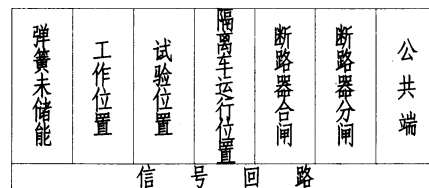 弹簧未储能
工作位置
试验位置
隔离车运行位置
断路器合闸
断路器分闸
公共端
信号回路